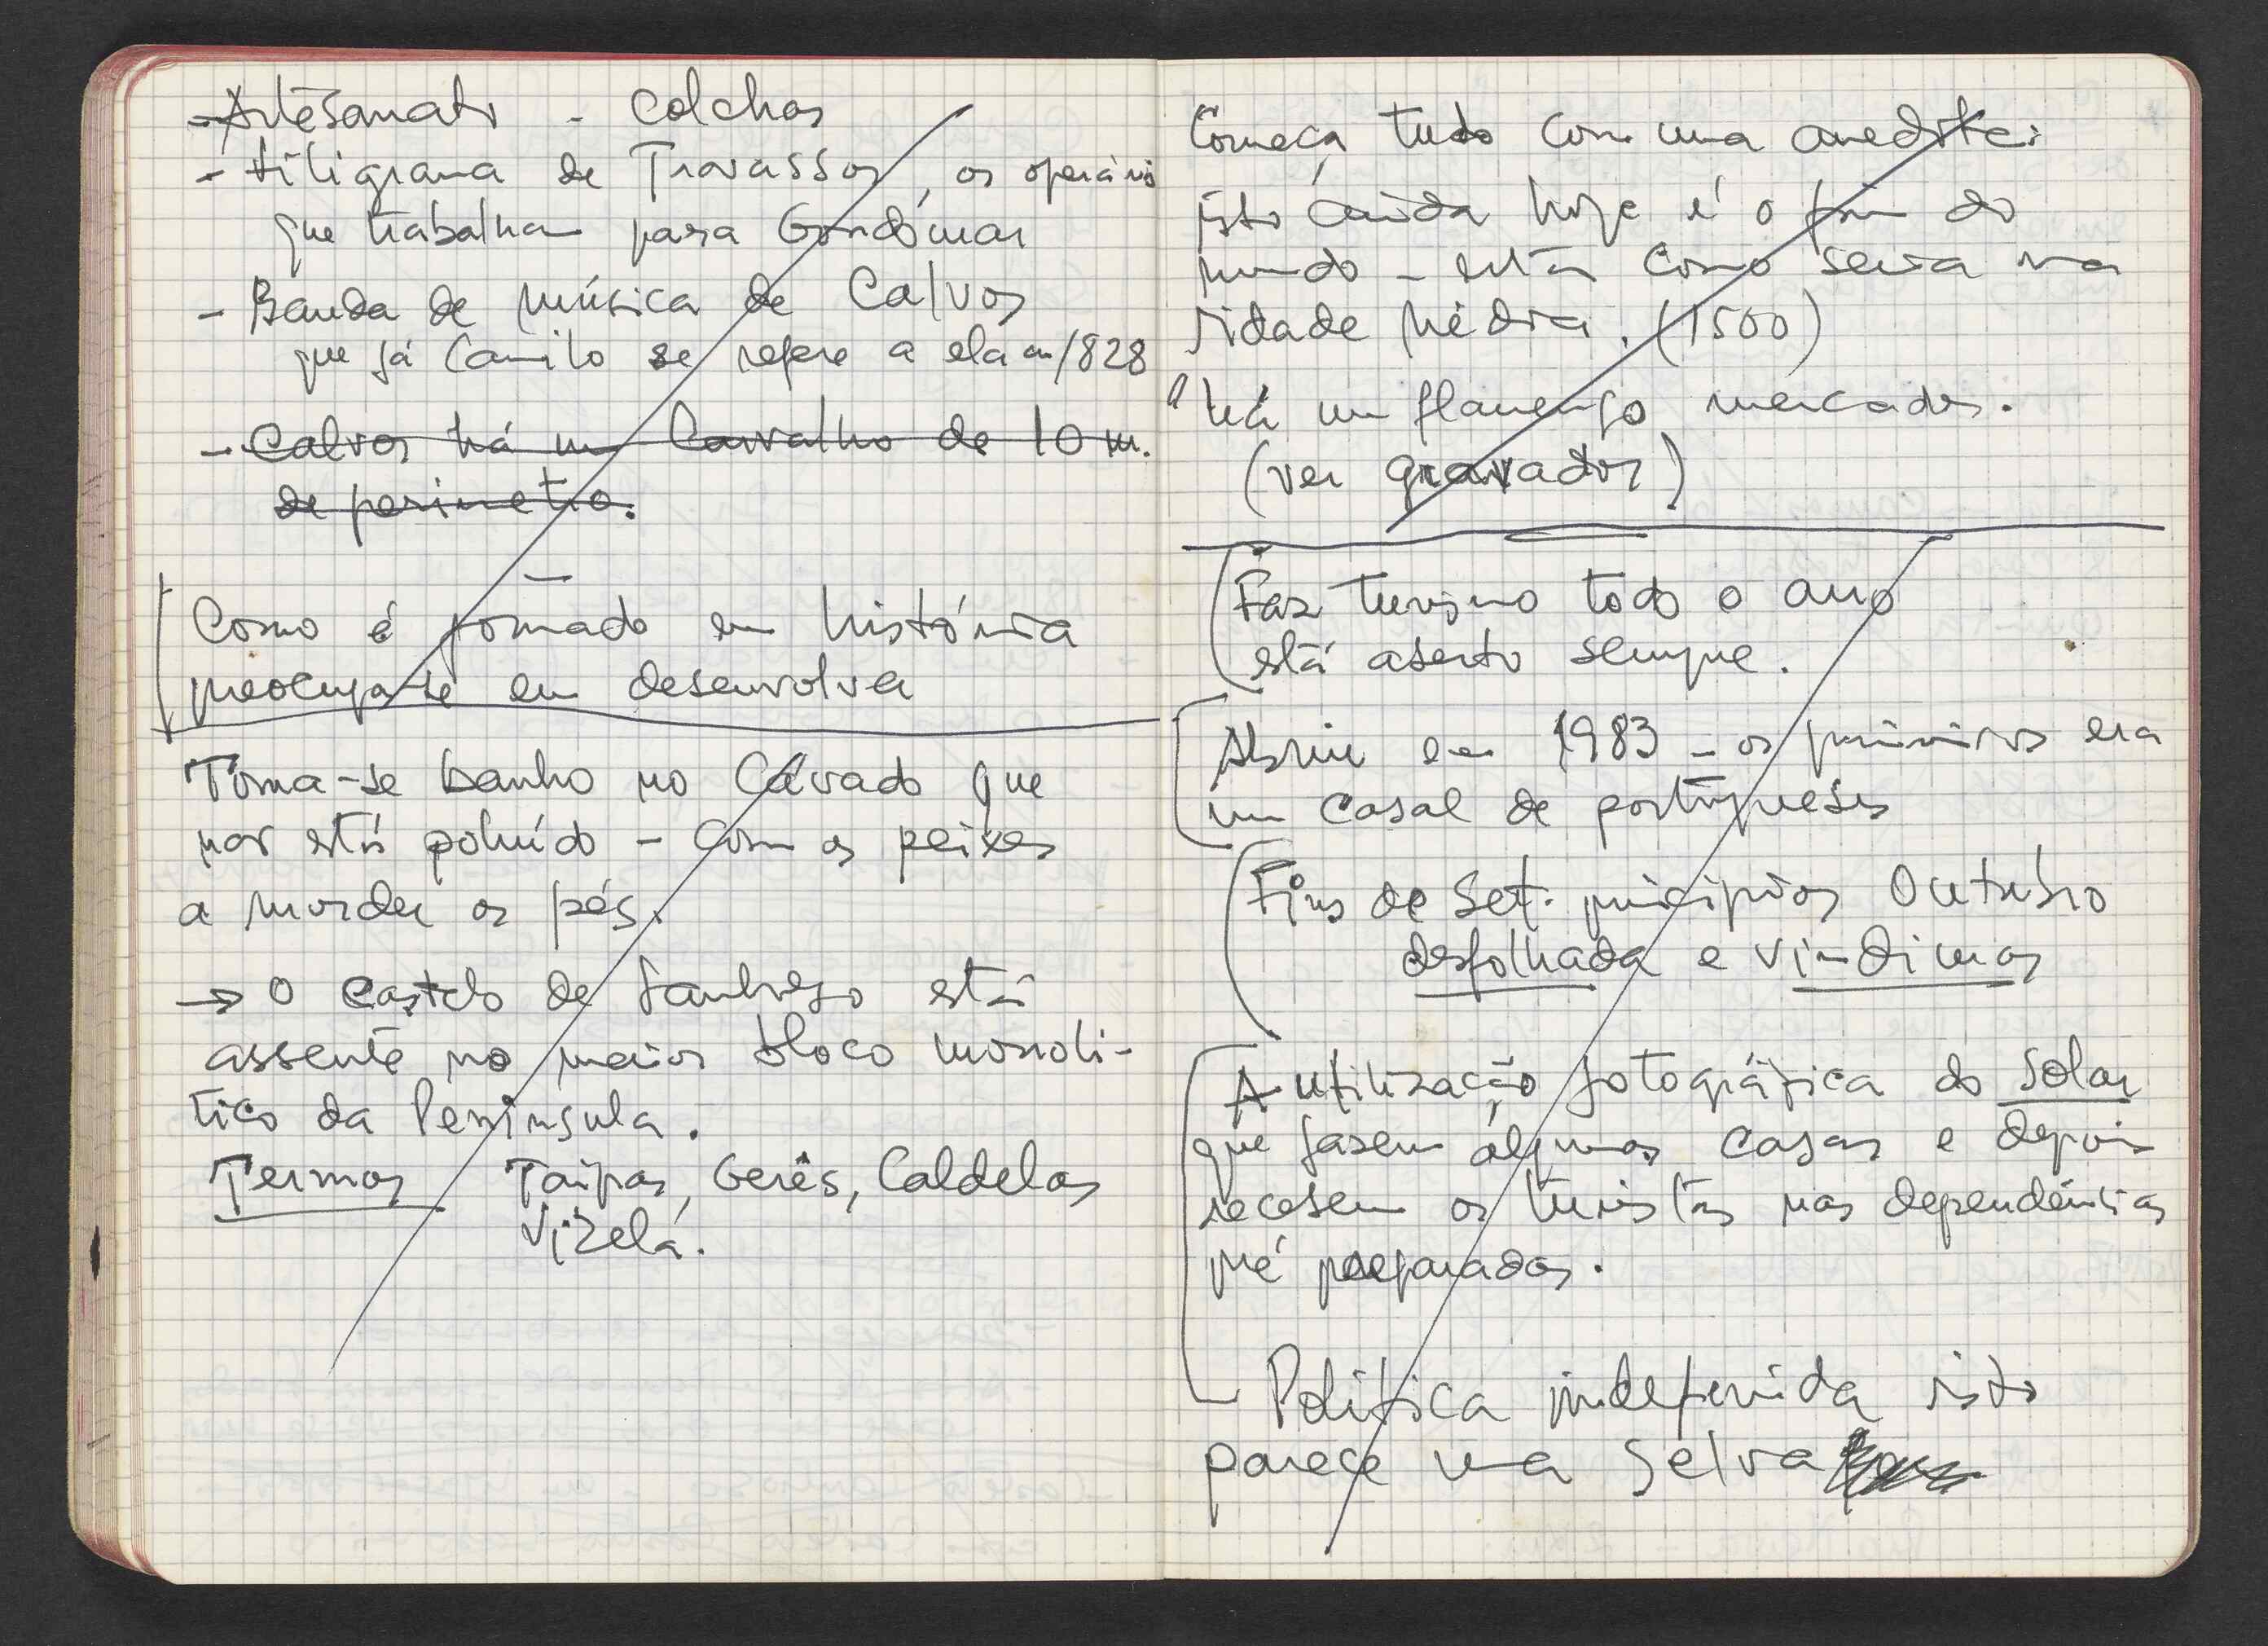 - Artesanato - Colchas
- Filigrana de Travassos, os operários
que trabalham para Gondomar
- Banda de música de Calvos
que já Camilo se refere a ela em 1828
- Calvos há um Carvalho de 10 m.
de perimetro.
Como é formado em história
preocupa-se em desenvolver
Toma-se banho no Cávado que
não está poluído - com os peixes
a morder os pés.
→ O Castelo de Lanhoso está
assente no maior bloco monolí-
tico da Península.
Termas Taipas, Gerês, Caldelas
Vizela.
Começa tudo com uma anedota:
isto ainda hoje é o fim do
mundo - então como seria na
Idade Média. (1500)
há um flamengo mercador.
(ver gravador)
Faz turismo todo o ano
está aberto sempre.
Abriu em 1983 - os primeiros era
um casal de portugueses
Fins de Set. princípios Outubro
desfolhada e vindimas
A utilização fotográfica do Solar
que fazem algumas casas e depois
recebem os turistas nas dependências
pré preparadas.
Política indefenida isto
parece uma selva